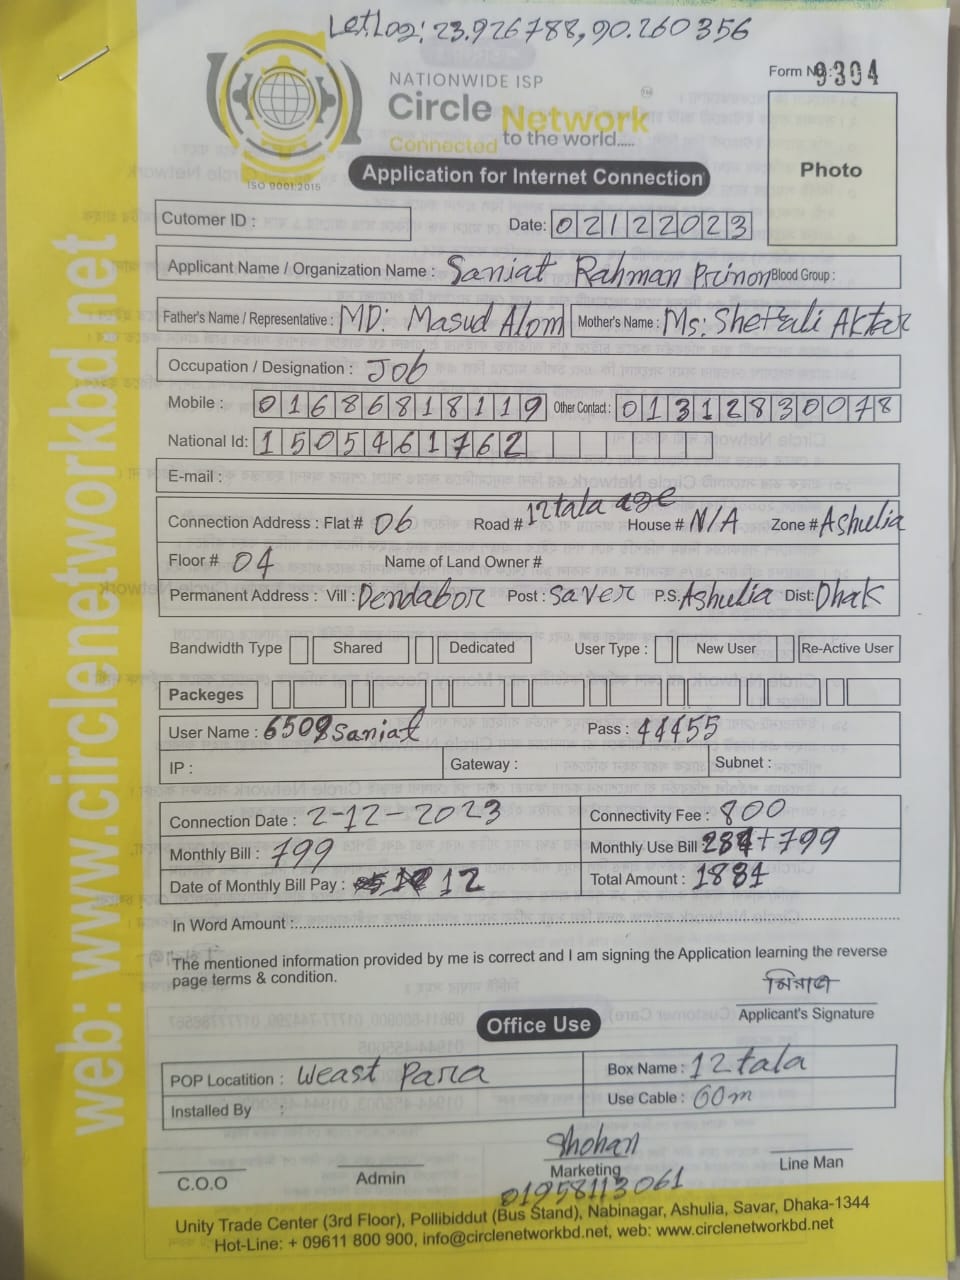 Let,Log: 23.926788,90.260356
Form No: 9304
NATIONWIDE ISP
Circle Network
Connected to the world.....
ISO 9001:2015
Application for Internet Connection
Photo
Cutomer ID :
Date: 02122023
Applicant Name / Organization Name : Saniat Rahman Prinon Blood Group :
Father's Name / Representative : MD: Masud Alom Mother's Name : Ms: Shefali Aktar
Occupation / Designation : Job
Mobile : 01686818119 Other Contact : 01312830078
National Id: 1505461762
E-mail :
Connection Address : Flat # 06 Road # 12tala age House # N/A Zone # Ashulia
Floor # 04 Name of Land Owner #
Permanent Address : Vill : Dendabor Post : saver P.S. Ashulia Dist: Dhak
Bandwidth Type Shared Dedicated User Type : New User Re-Active User
Packeges
User Name : 6509saniat Pass : 44455
IP : Gateway : Subnet :
Connection Date : 2-12-2023 Connectivity Fee : 800
Monthly Bill : 799 Monthly Use Bill 284+799
Date of Monthly Bill Pay : 12 Total Amount : 1884
In Word Amount :
The mentioned information provided by me is correct and I am signing the Application learning the reverse
page terms & condition.
Applicant's Signature
Office Use
POP Locatition : Weast Para Box Name : 12tala
Installed By : Use Cable : 60m
Shohan
C.O.O Admin Marketing Line Man
01958113061
Unity Trade Center (3rd Floor), Pollibiddut (Bus Stand), Nabinagar, Ashulia, Savar, Dhaka-1344
Hot-Line: + 09611 800 900, info@circlenetworkbd.net, web: www.circlenetworkbd.net
web: www.circlenetworkbd.net